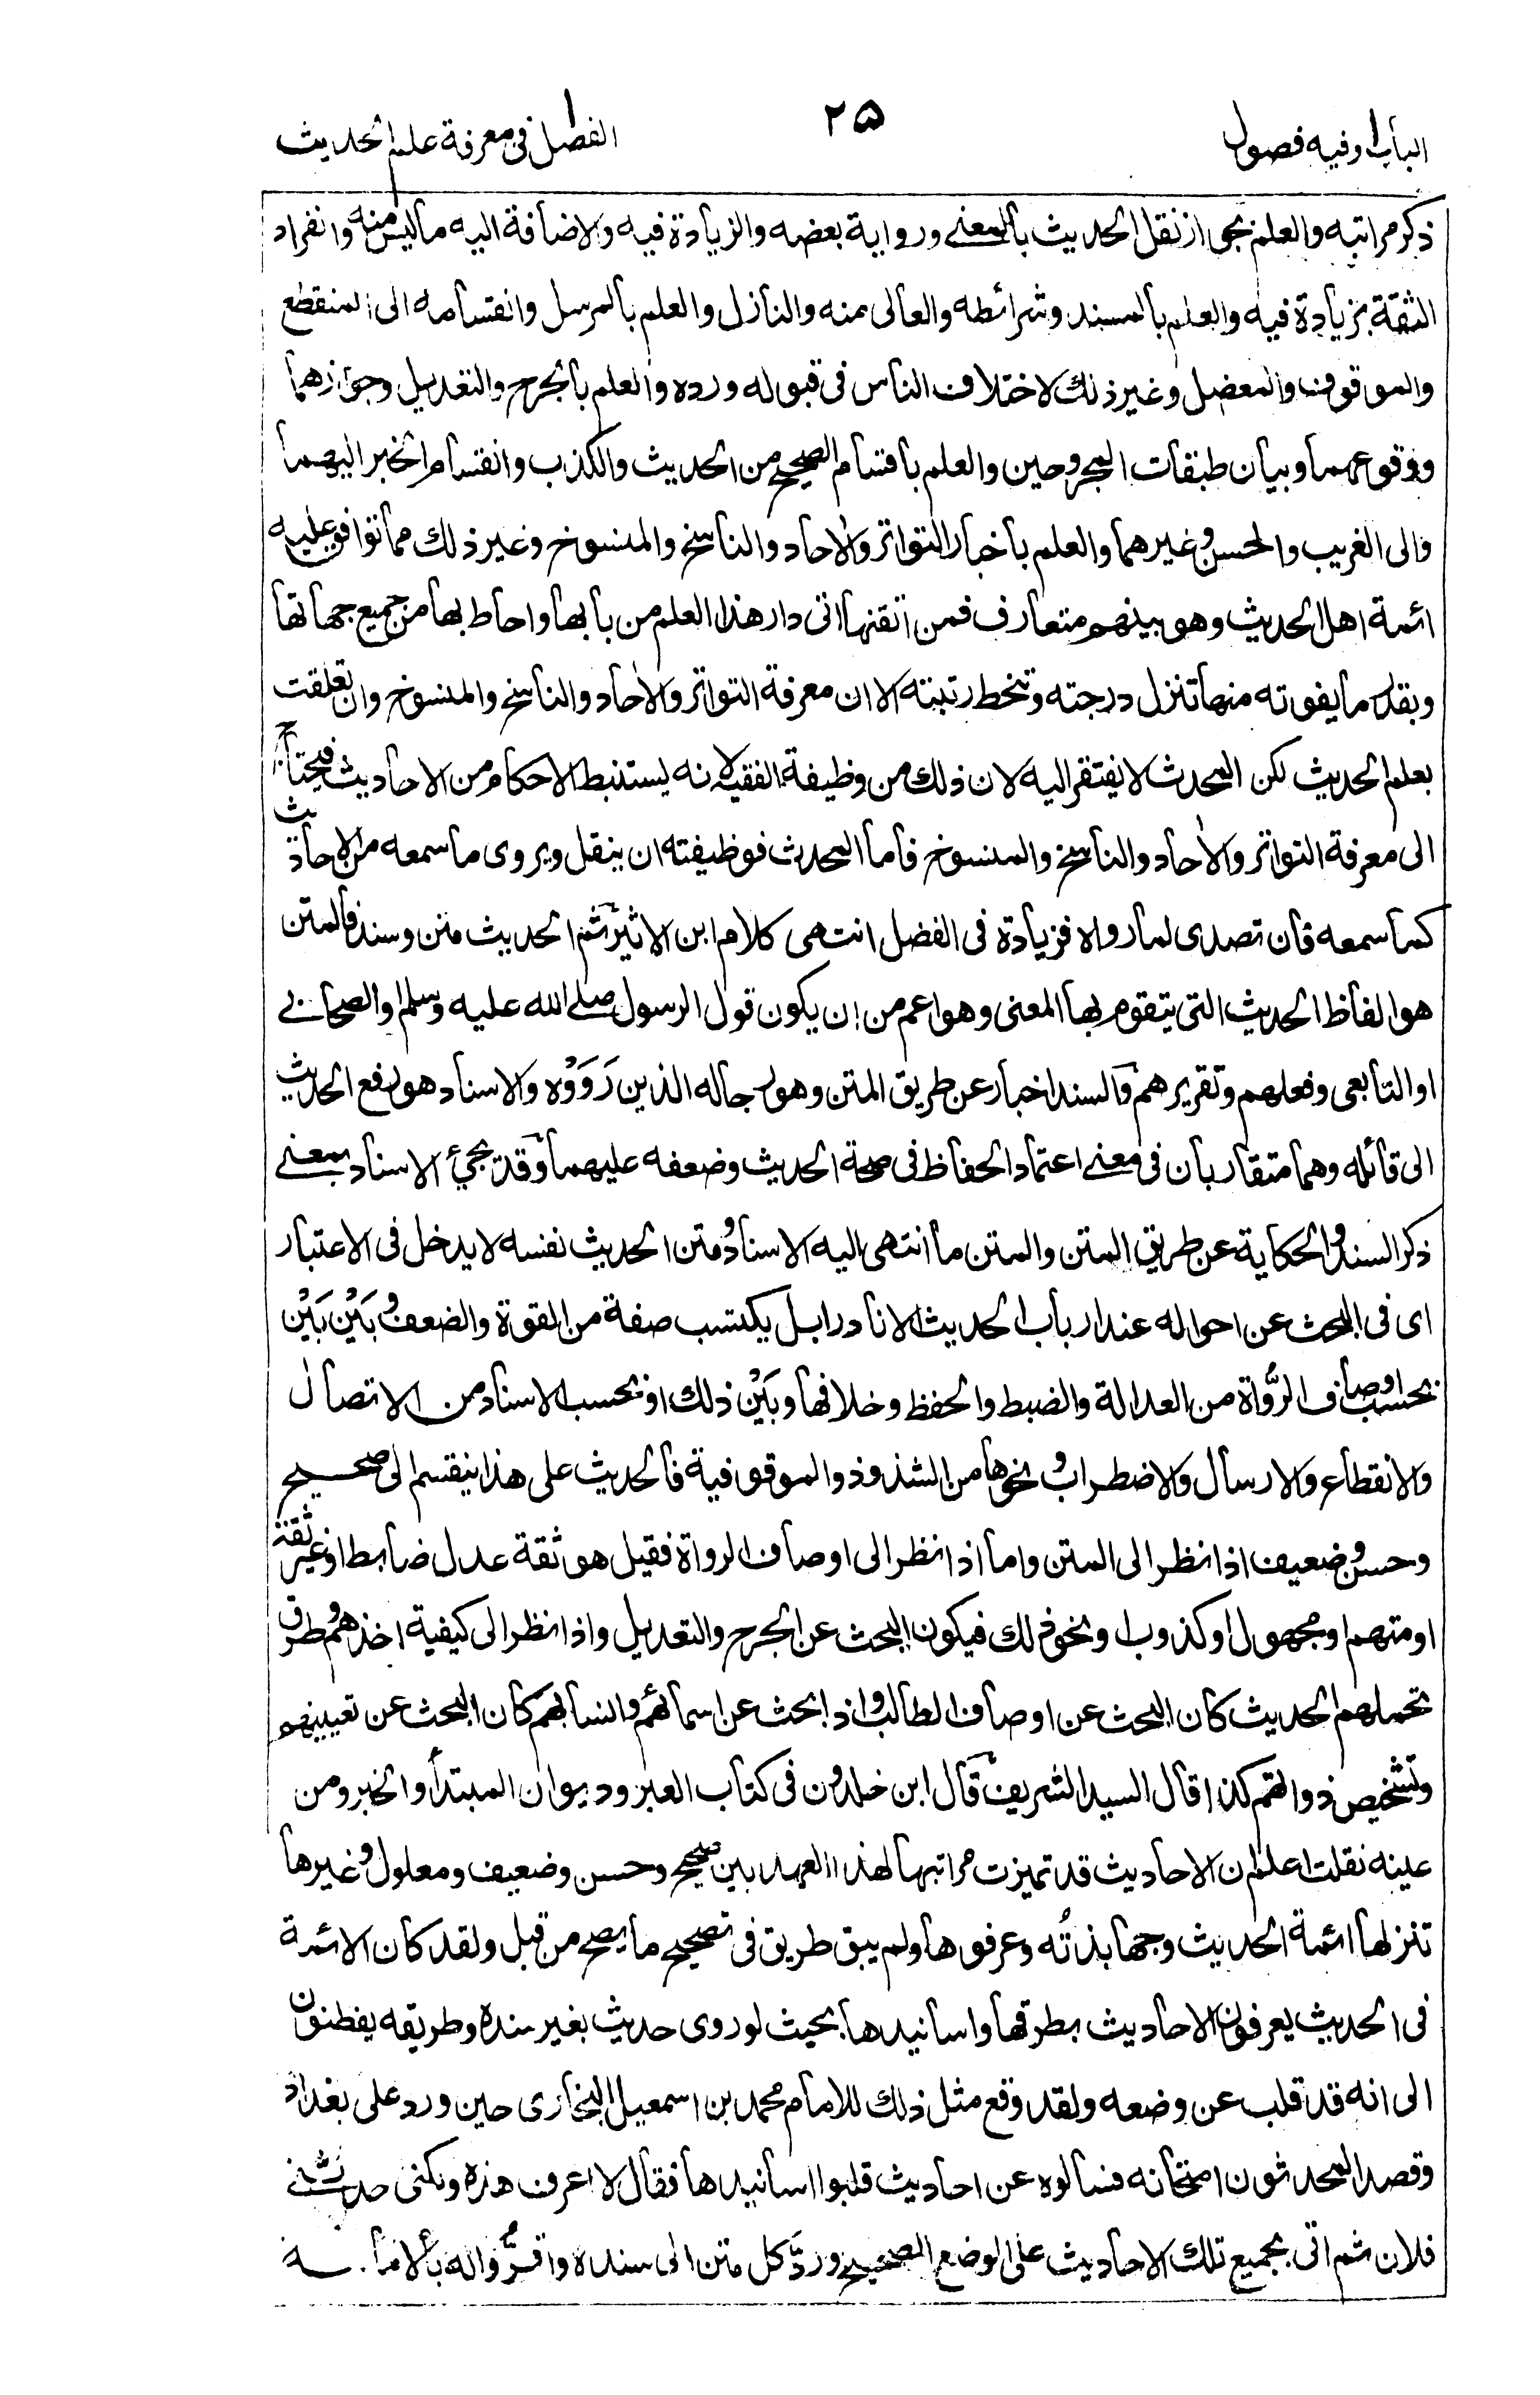 الباب ١ وفيه فصول
٢٥
الفصل ١ في معرفة علم الحديث
ذكر مراتبه والعلم بجواز نقل الحديث بالمعنى ورواية بعضه والزيادة فيه والاضافة اليه ما ليس منه وانفراد
الثقة بزيادة فيه والعلم بالمسند وشرائطه والعالى منه والنازل والعلم بالمرسل وانقسامه الى المنقطع
والموقوف والمعضل وغير ذلك لاختلاف الناس فى قبوله ورده والعلم بالجرح والتعديل وجوازهما
ووقوعهما وبيان طبقات المجروحين والعلم باقسام الصحيح من الحديث والكذب وانقسام الخبر اليهما
والى الغريب والحسن وغيرهما والعلم باخبار التواتر والآحاد والناسخ والمنسوخ وغير ذلك مما توافق عليه
ائمة اهل الحديث وهو بينهم متعارف فمن اتقنها اتى دار هذا العلم من بابها واحاط بها من جميع جهاتها
وبقدر ما يفوته منها تنزل درجته وتنحط رتبته الا ان معرفة التواتر والآحاد والناسخ والمنسوخ وان تعلقت
بعلم الحديث لكن المحدث لا يفتقر اليه لان ذلك من وظيفة الفقيه لانه يستنبط الاحكام من الاحاديث فيحتاج
الى معرفة التواتر والآحاد والناسخ والمنسوخ فاما المحدث فوظيفته ان ينقل ويروى ما سمعه من الاحاديث
كما سمعه فان تصدى لما رواه فزيادة فى الفضل انتهى كلام ابن الاثير ثم الحديث متن وسند فالمتن
هو الفاظ الحديث التى يتقوم بها المعنى وهو اعم من ان يكون قول الرسول صلى الله عليه وسلم او الصحابى
او التابعى وفعلهم وتقريرهم والسند اخبار عن طريق المتن وهو رجاله الذين رَوَوْه والاسناد هو رفع الحديث
الى قائله وهما متقاربان فى معنى اعتماد الحفاظ فى صحة الحديث وضعفه عليهما وقد يجئ الاسناد بمعنى
ذكر السند والحكاية عن طريق المتن والمتن ما انتهى اليه الاسناد ومتن الحديث نفسه لا يدخل فى الاعتبار
اى فى البحث عن احواله عند ارباب الحديث الا نادرا بل يكتسب صفة من القوة والضعف وبَيْن بَيْن
بحسب اوصاف الرُّواة من العدالة والضبط والحفظ وخلافها وبَيْن ذلك او بحسب الاسناد من الاتصال
والانقطاع والارسال والاضطراب ونحوها من الشذوذ والموقوفية فالحديث على هذا ينقسم الى صحيح
وحسن وضعيف اذا نظر الى المتن واما اذا نظر الى اوصاف الرواة فقيل هو ثقة عدل ضابط او غير ثقة
او متهم او مجهول او كذوب او نحو ذلك فيكون البحث عن الجرح والتعديل واذا نظر الى كيفية اخذهم وطرق
تحملهم الحديث كان البحث عن اوصاف الطالب واذا بحث عن اسمائهم وانسابهم كان البحث عن تعيينهم
وتشخيص ذواتهم كذا قال السيد الشريف قال ابن خلدون فى كتاب العبر وديوان المبتدأ والخبر ومن
عينه نقلت اعلم ان الاحاديث قد تميزت مراتبها لهذا العهد بين صحيح وحسن وضعيف ومعلول وغيرها
تنزلها ائمة الحديث وجهابذتُه وعرفوها ولم يبق طريق فى تصحيح ما يصح من قبل ولقد كان الائمة
فى الحديث يعرفون الاحاديث بطرقها واسانيدها بحيث لو روى حديث بغير سنده وطريقه يفطنون
الى انه قد قلب عن وضعه ولقد وقع مثل ذلك للامام محمد بن اسمعيل البخارى حين ورد على بغداد
وقصد المحدثون امتحانه فسالوه عن احاديث قلبوا اسانيدها فقال لا اعرف هذه ولكنى حدثنى
فلان ثم اتى بجميع تلك الاحاديث على الوضع الصحيح وردَّ كل متن الى سنده واقرُّوا له بالامامة